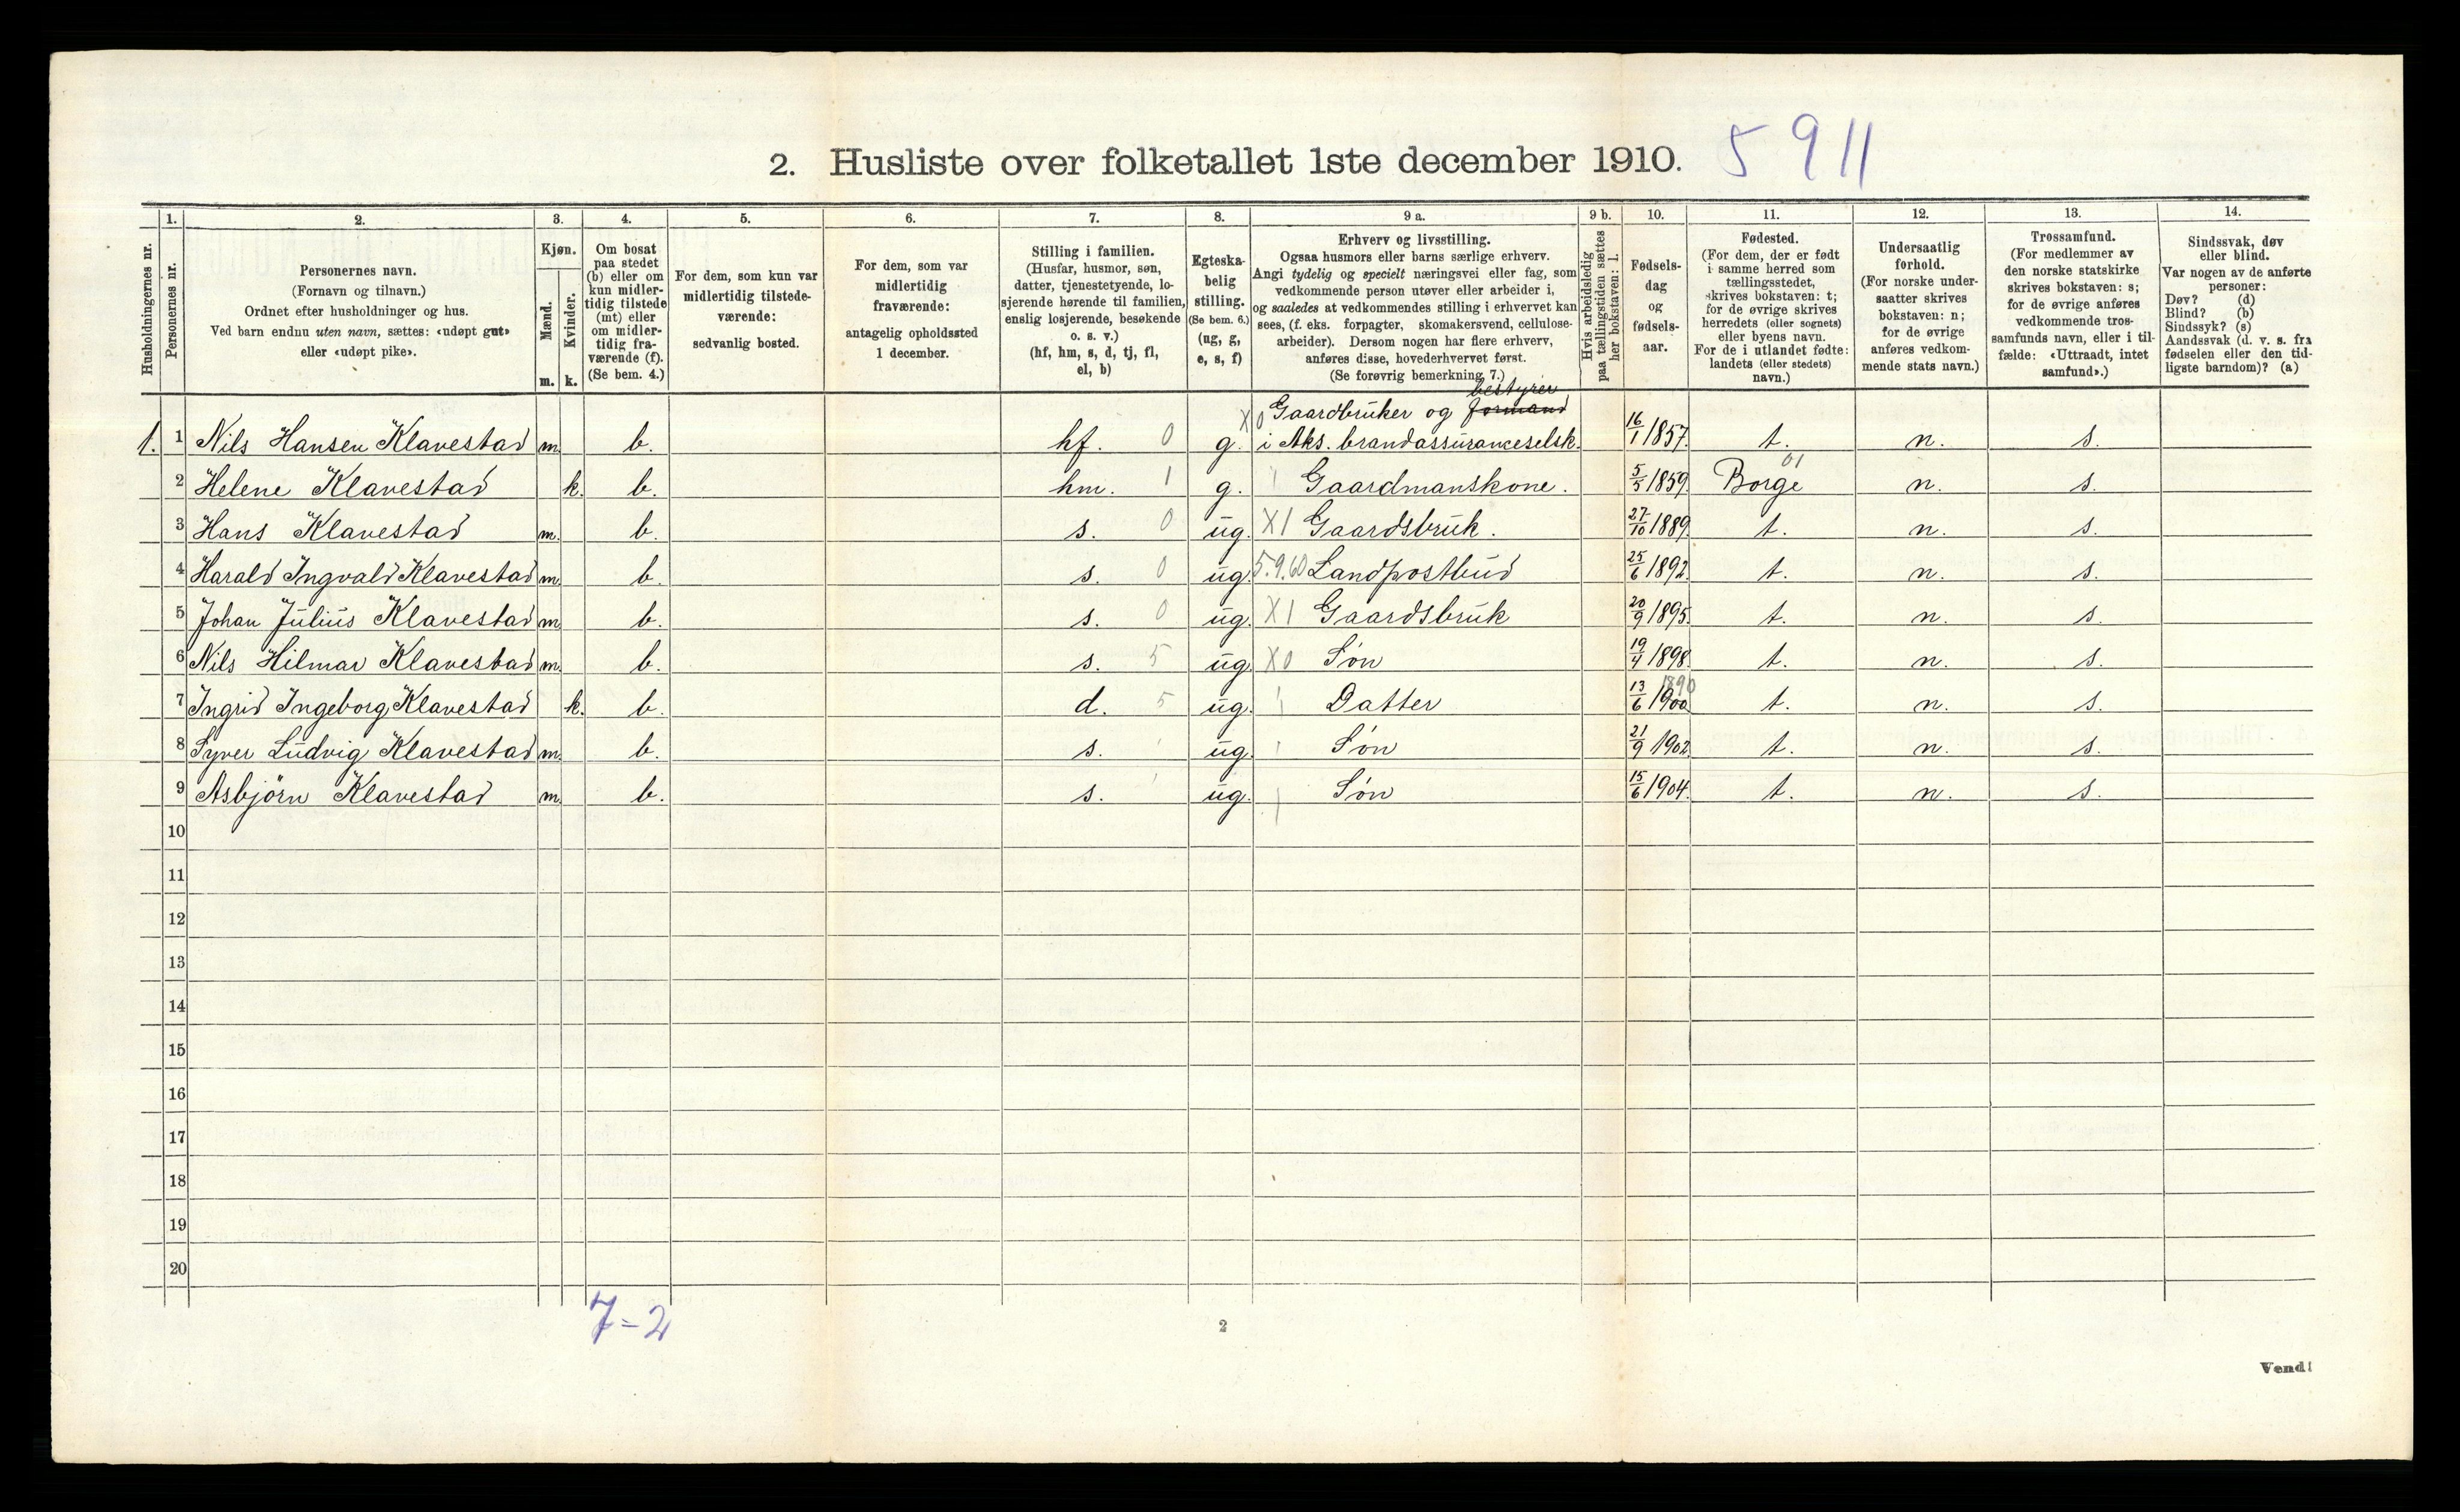 2. Husliste over folketallet 1ste december 1910. 5 911
Husholdningernes nr.
1.
Personernes nr.
2.
Personernes navn.
(Fornavn og tilnavn.)
Ordnet efter husholdninger og hus.
Ved barn endnu uten navn, sættes: «udøpt gut»
eller «udøpt pike».
3.
Kjøn.
Mænd.
Kvinder.
m. k.
4.
Om bosat
paa stedet
(b) eller om
kun midler-
tidig tilstede
(mt) eller
om midler-
tidig fra-
værende (f).
(Se bem. 4.)
5.
For dem, som kun var
midlertidig tilstede-
værende:
sedvanlig bosted.
6.
For dem, som var
midlertidig
fraværende:
antagelig opholdssted
1 december.
7.
Stilling i familien.
(Husfar, husmor, søn,
datter, tjenestetyende, lo-
sjerende hørende til familien,
enslig losjerende, besøkende
o. s. v.)
(hf, hm, s, d, tj, fl,
el, b)
8.
Egteska-
belig
stilling.
(Se bem. 6.)
(ug, g,
e, s, f)
9 a.
Erhverv og livsstilling.
Ogsaa husmors eller barns særlige erhverv.
Angi tydelig og specielt næringsvei eller fag, som
vedkommende person utøver eller arbeider i,
og saaledes at vedkommendes stilling i erhvervet kan
sees, (f. eks. forpagter, skomakersvend, cellulose-
arbeider). Dersom nogen har flere erhverv,
anføres disse, hovederhvervet først.
(Se forøvrig bemerkning 7.)
9 b.
Hvis arbeidsledig
paa tællingstiden sættes
her bokstaven: l.
10.
Fødsels-
dag
og
fødsels-
aar.
11.
Fødested.
(For dem, der er født
i samme herred som
tællingsstedet,
skrives bokstaven: t;
for de øvrige skrives
herredets (eller sognets)
eller byens navn.
For de i utlandet fødte:
landets (eller stedets)
navn.)
12.
Undersaatlig
forhold.
(For norske under-
saatter skrives
bokstaven: n;
for de øvrige
anføres vedkom-
mende stats navn.)
13.
Trossamfund.
(For medlemmer av
den norske statskirke
skrives bokstaven: s;
for de øvrige anføres
vedkommende tros-
samfunds navn, eller i til-
fælde: «Uttraadt, intet
samfund».)
14.
Sindssvak, døv
eller blind.
Var nogen av de anførte
personer:
Døv? (d)
Blind? (b)
Sindssyk? (s)
Aandssvak (d. v. s. fra
fødselen eller den tid-
ligste barndom)? (a)
bestyrer
X0 Gaardbruker og formand
1. 1 Nils Hansen Klavestad m. b. hf. 0 g. i Aks. brandassuranceselsk. 16/1 1857. t. n. s.
2 Helene Klavestad k. b. hm. 1 g. Gaardmanskone. 5/5 1859. Borge 01 n. s.
3 Hans Klavestad m. b. s. 0 ug. X1 Gaardsbruk. 27/10 1889. t. n. s.
4 Harald Ingvald Klavestad m. b. s. 0 ug. 5.9.60 Landpostbud 25/6 1892. t. n. s.
5 Johan Julius Klavestad m. b. s. 0 ug. X1 Gaardsbruk 20/9 1895. t. n. s.
6 Nils Hilmar Klavestad m. b. s. 5 ug. X0 Søn 19/4 1898. t. n. s.
7 Ingrid Ingeborg Klavestad k. b. d. 5 ug. Datter 13/6 1900 1890 t. n. s.
8 Syver Ludvig Klavestad m. b. s. ug. Søn 21/9 1902. t. n. s.
9 Asbjörn Klavestad m. b. s. ug. Søn 15/6 1904. t. n. s.
10
11
12
13
14
15
16
17
18
19
20
7=2
2
Vend!